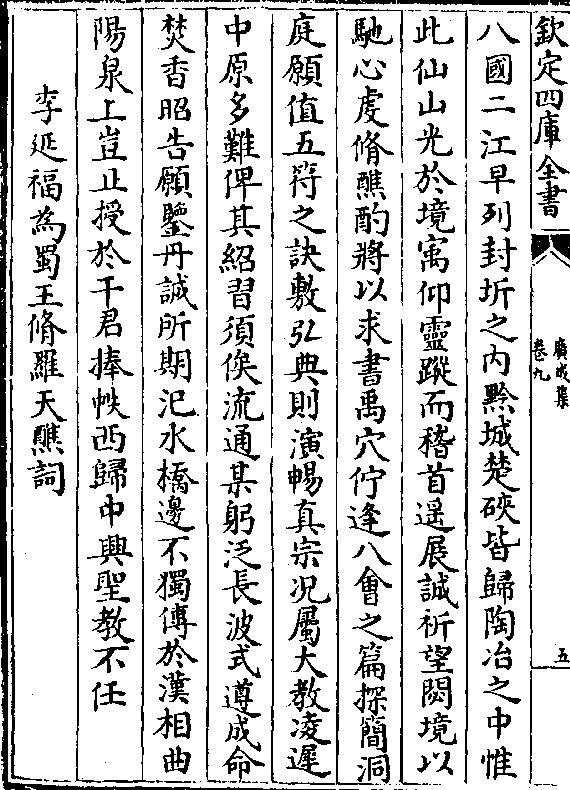 欽定四庫全書
廣成集
卷九
五
八國二江早列封圻之内黔城楚硤皆歸陶冶之中惟
此仙山光於境㝢仰靈蹤而稽首遥展誠祈望閟境以
馳心虔脩醮酌將以求書禹穴佇逢八會之篇探簡洞
庭願值五符之訣敷弘典則演暢真宗况屬大教凌遲
中原多難俾其紹習須俟流通某躬泛長波式遵成命
焚香昭告願鑒丹誠所期汜水橋邊不獨傳於漢相曲
陽泉上豈止授於干君捧帙西歸中興聖教不任
李延福為蜀王脩羅天醮詞